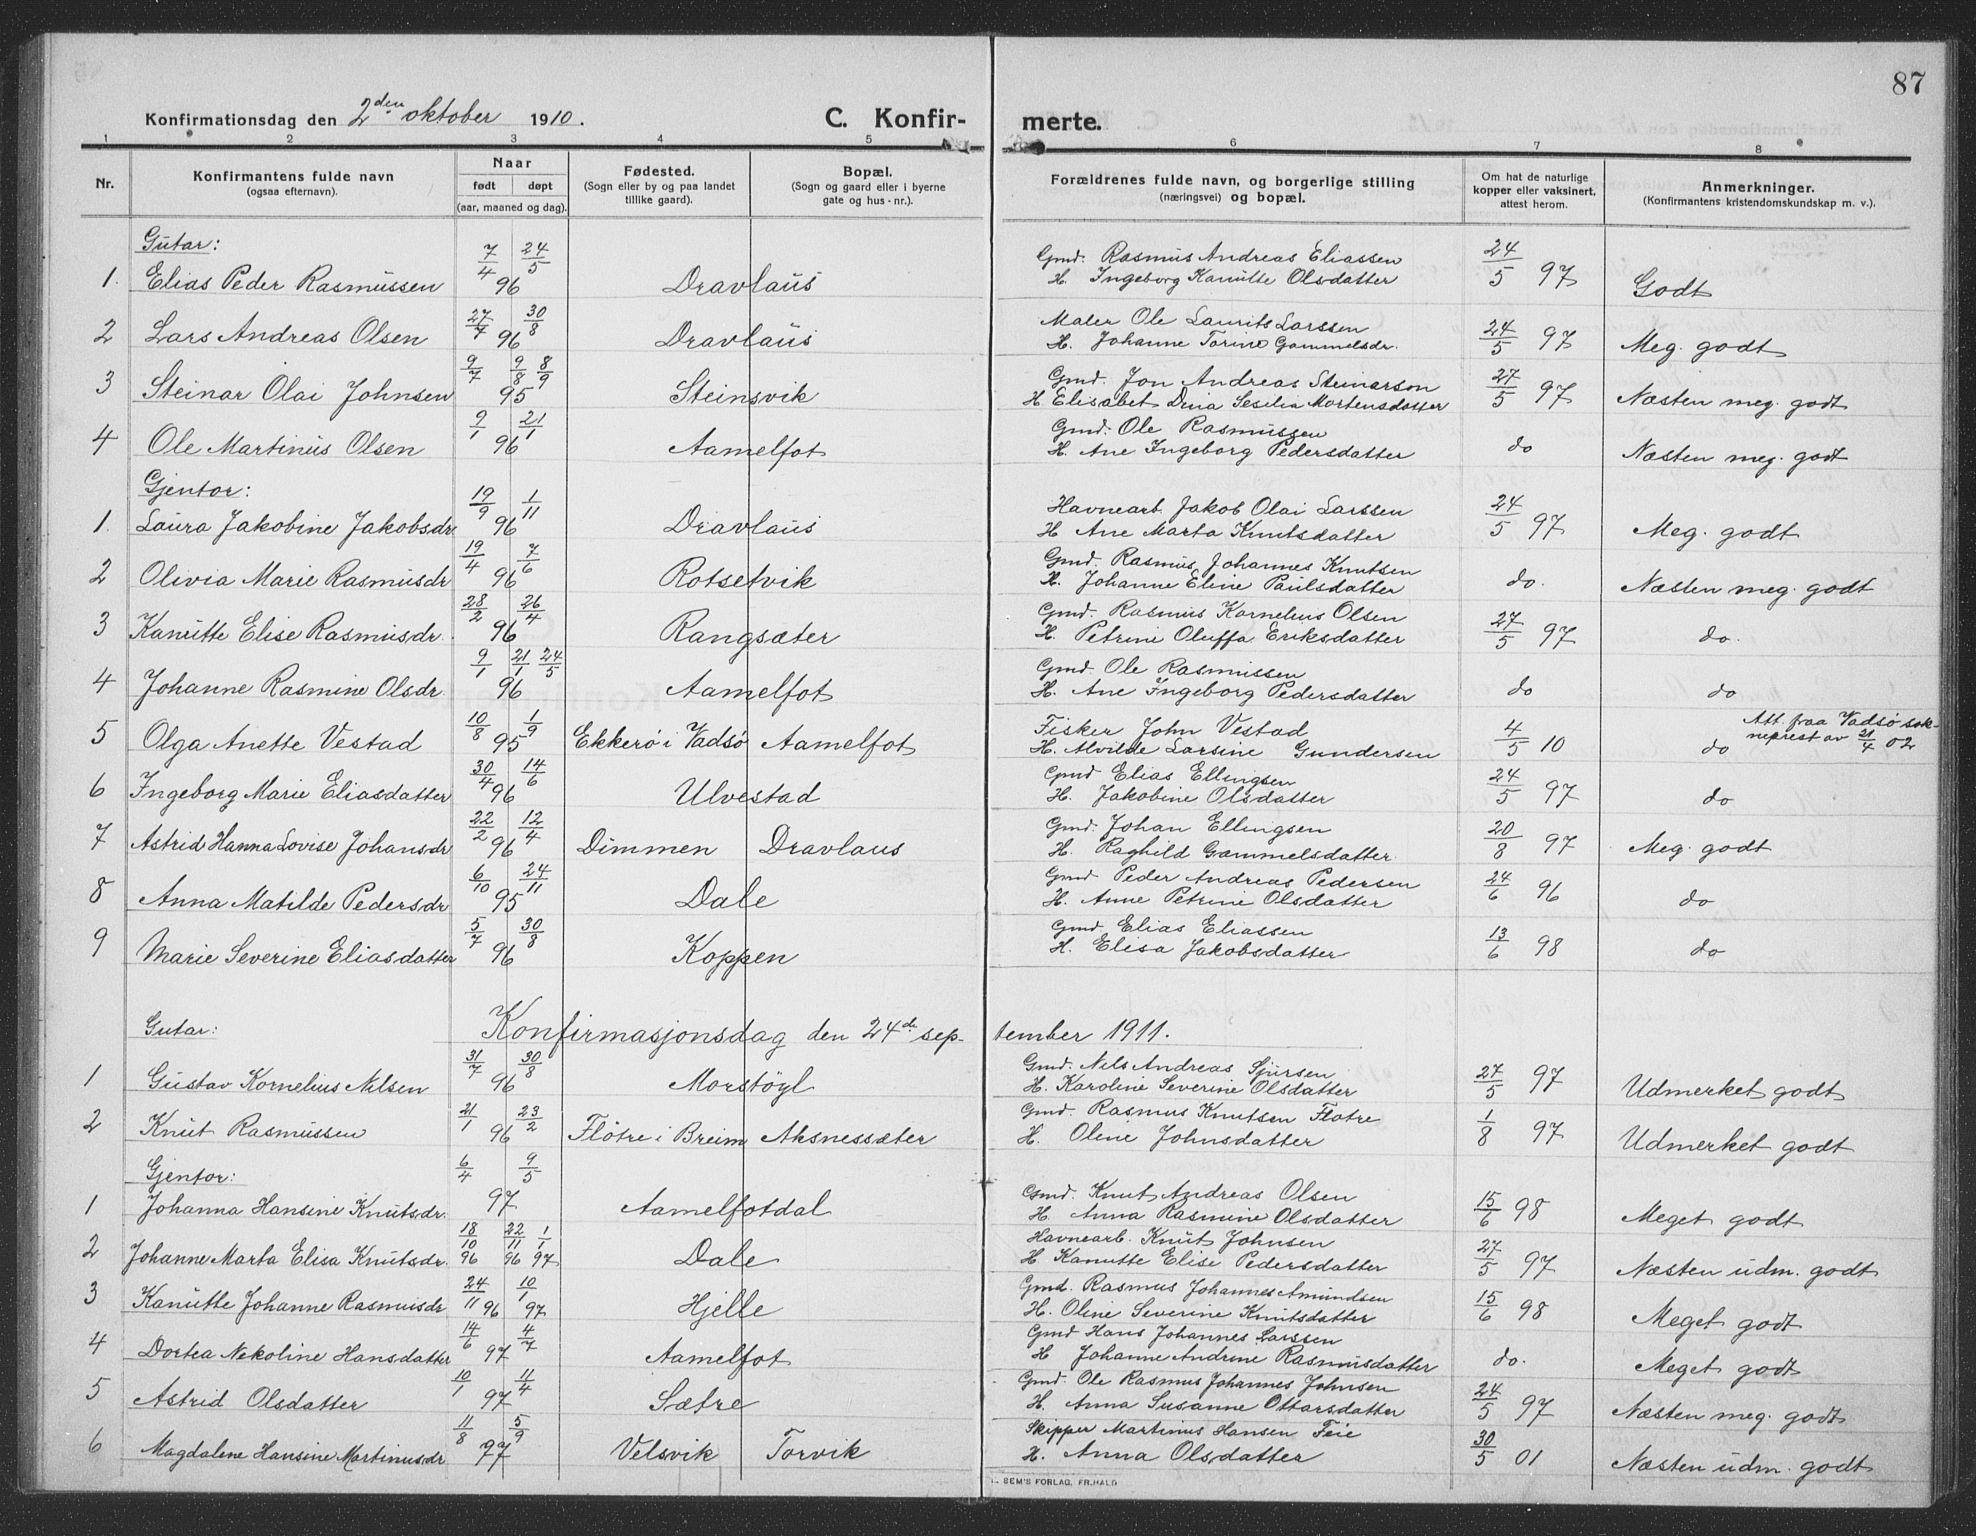 87
Konfirmationsdag den 2den oktober 1910. C. Konfir- merte.
1 2 3 4 5 6 7 8
Nr. Konfirmantens fulde navn (ogsaa efternavn). Naar født døpt (aar, maaned og dag). Fødested. (Sogn eller by og paa landet tillike gaard). Bopæl. (Sogn og gaard eller i byerne gate og hus-nr.). Forældrenes fulde navn, og borgerlige stilling (næringsvei) og bopæl. Om hat de naturlige kopper eller vaksinert, attest herom. Anmerkninger. (Konfirmantens kristendomskundskap m. v.).
Gutar:
1. Elias Peder Rasmussen 7/4 24/5 96 Dravlaus Gmd. Rasmus Andreas Eliassen H. Ingeborg Kanutte Olsdatter 24/5 97 Godt
2 Lars Andreas Olsen 27/7 30/8 96 Dravlaus Maler Ole Laurits Larssen H. Johanne Torine Gammelsdr. 24/5 97 Meg. godt
3 Steinar Olai Johnsen 9/7 9/8 8/9 95 Steinsvik Gmd. Jon Andreas Steinarson H Elisabet Dina Sesilia Mortensdatter 27/5 97 Næsten meg. godt
4 Ole Martinus Olsen 9/1 21/1 96 Aamelfot Gmd. Ole Rasmussen H. Ane Ingeborg Pedersdatter do Næsten meg. godt
Gjentor:
1. Laura Jakobine Jakobsdr 19/9 1/11 96 Dravlaus Havnearb. Jakob Olai Larssen H Ane Marta Knutsdatter 24/5 97 Meg. godt
2 Olivia Marie Rasmusdr 19/4 7/6 96 Rotsetvik Gmd. Rasmus Johannes Knutsen H. Johanne Eline Paulsdatter do. Næsten meg. godt
3 Kanutte Elise Rasmusdr. 28/2 26/4 96 Rangsæter Gmd. Rasmus Kornelius Olsen H. Petrine Oluffa Eriksdatter 27/5 97 do.
4 Johanne Rasmine Olsdr. 9/1 21/1 24/5 96 Aamelfot Gmd Ole Rasmussen H. Ane Ingeborg Pedersdatter do do
5 Olga Anette Vestad 10/8 1/9 95 Ekkerö i Vadsö Aamelfot Fisker John Vestad H. Alvilde Larsine Gundersen 4/5 10 do Att. fraa Vadsø sok-neprest av 21/4 02
6 Ingeborg Marie Eliasdatter 30/4 14/6 96 Ulvestad Gmd Elias Ellingsen H. Jakobine Olsdatter 24/5 97 do
7 Astrid Hanna Lovise Johansdr 22/2 12/4 96 Dimmen Dravlaus Gmd. Johan Ellingsen H. Raghild Gammelsdatter 20/8 97 Meg. godt
8 Anna Matilde Pedersdr 6/10 24/11 95 Dale Gmd Peder Andreas Pedersen H. Anne Petrine Olsdatter 24/6 96 do
9 Marie Severine Eliasdatter 5/7 30/8 96 Koppen Gmd Elias Eliassen H. Elisa Jakobsdatter 13/6 98 do
Gutar: Konfirmasjonsdag den 24de sep- tember 1911.
1 Gustav Kornelius Nilsen 31/7 30/8 96 Morstöyl Gmd. Nils Andreas Sjursen H. Karoline Severine Olsdatter 27/5 97 Udmerket godt
2 Knut Rasmussen 21/1 23/2 96 Flötre i Breim Aksnessæter Gmd. Rasmus Knutsen Flotre H. Oline Johnsdatter 1/8 97 Udmerket godt
Gjentor:
1 Johanna Hansine Knutsdr. 6/4 9/5 97 Aamelfotdal Gmd. Knut Andreas Olsen H. Anna Rasmine Olsdatter 15/6 98 Meget godt
2 Johanne Marta Elisa Knutsdr. 18/10 96 22/11 96 1/1 97 Dale Havnearb. Knut Johnsen H Kanutte Elise Pedersdatter 27/5 97 Næsten udm. godt
3 Kanutte Johanne Rasmusdr 24/11 96 10/1 97 Hjelle Gmd. Rasmus Johannes Amundsen H. Oline Severine Knutsdatter 15/6 98 Meget godt
4 Dortea Nekoline Hansdatter 14/6 4/7 97 Aamelfot Gmd Hans Johannes Larssen H Johanne Andrine Rasmusdatter do. Meget godt
5 Astrid Olsdatter 10/1 11/4 97 Sætre Gmd. Ole Rasmus Johannes Johnsen H. Anna Susanne Ottarsdatter 24/5 97 Næsten meg. godt
6 Magdalene Hansine Martinusdr 11/8 5/9 97 Velsvik Torvik Skipper Martinus Hansen Feie H. Anna Olsdatter 30/5 01 Næsten udm. godt
SEM'S FORLAG, FR.HALD